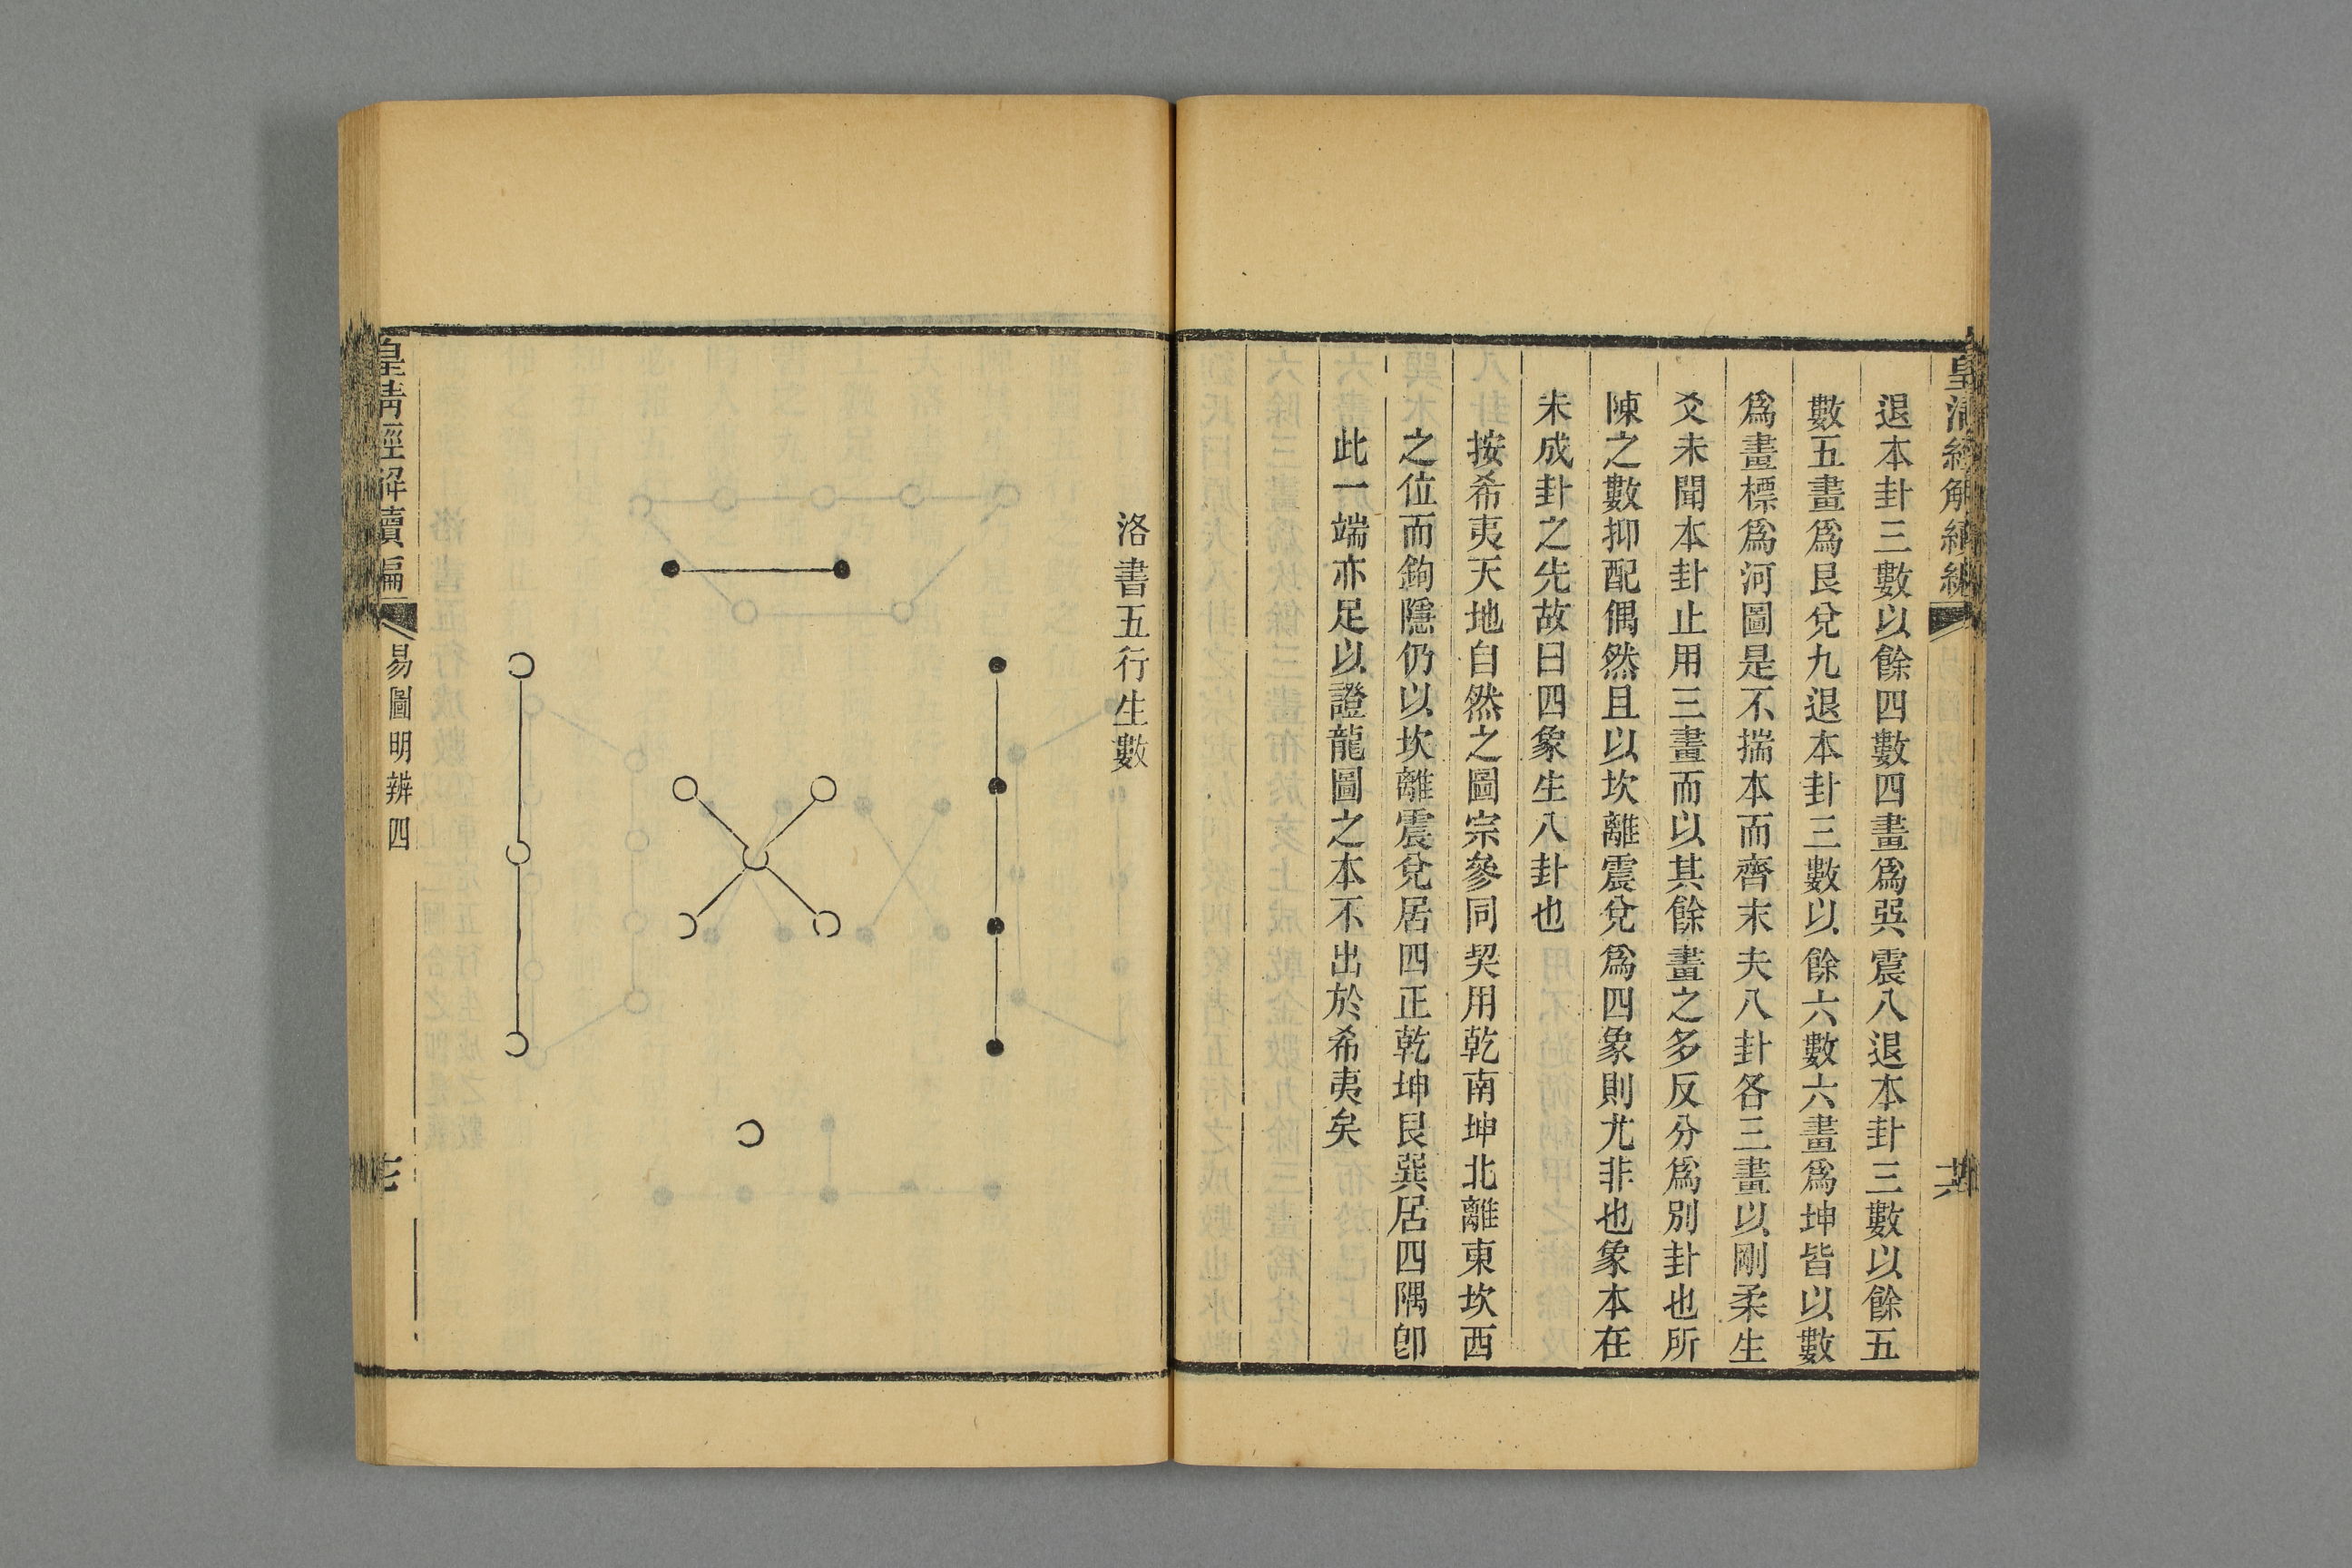 皇清經解續編
退本卦三數以餘四數四畫爲巽震八退本卦三數以餘五
數五畫爲艮兌九退本卦三數以餘六數六畫爲坤皆以數
爲畫標爲河圖是不揣本而齊末夫八卦各三畫以剛柔生
爻未聞本卦止用三畫而以其餘畫之多反分爲別卦也所
陳之數抑配偶然且以坎離震兌爲四象則尤非也象本在
未成卦之先故曰四象生八卦也
按希夷天地自然之圖宗參同契用乾南坤北離東坎西
之位而鉤隱仍以坎離震兌居四正乾坤艮巽居四隅卽
此一端亦足以證龍圖之本不出於希夷矣
洛書五行生數
皇清經解續編
易圖明辨四